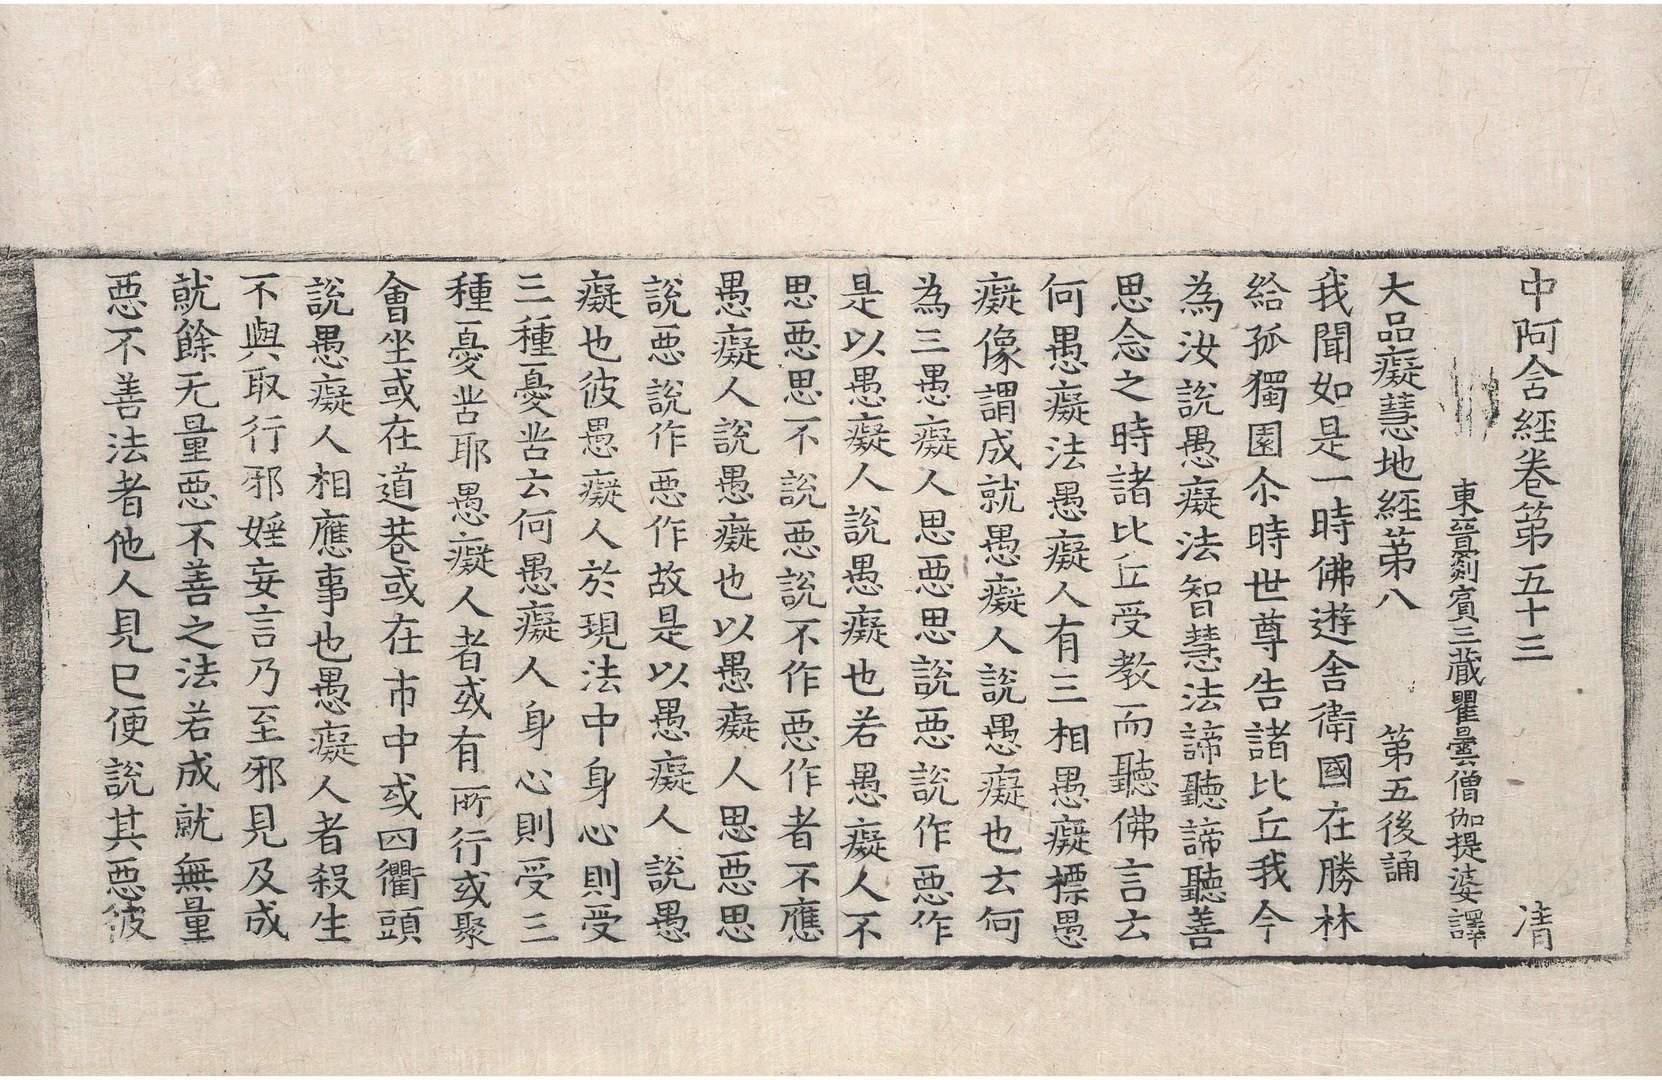 中阿含經卷第五十三 凊
東晉罽賓三藏瞿曇僧伽提婆譯
大品癡慧地經第八 第五後誦
我聞如是一時佛遊舍衛國在勝林
給孤獨園尒時世尊告諸比丘我今
為汝說愚癡法智慧法諦聽諦聽善
思念之時諸比丘受教而聽佛言云
何愚癡法愚癡人有三相愚癡標愚
癡像謂成就愚癡人說愚癡也云何
為三愚癡人思惡思說惡說作惡作
是以愚癡人說愚癡也若愚癡人不
思惡思不說惡說不作惡作者不應
愚癡人說愚癡也以愚癡人思惡思
說惡說作惡作故是以愚癡人說愚
癡也彼愚癡人於現法中身心則受
三種憂苦云何愚癡人身心則受三
種憂苦耶愚癡人者或有所行或聚
會坐或在道巷或在市中或四衢頭
說愚癡人相應事也愚癡人者殺生
不與取行邪婬妄言乃至邪見及成
就餘无量惡不善之法若成就無量
惡不善法者他人見已便說其惡彼